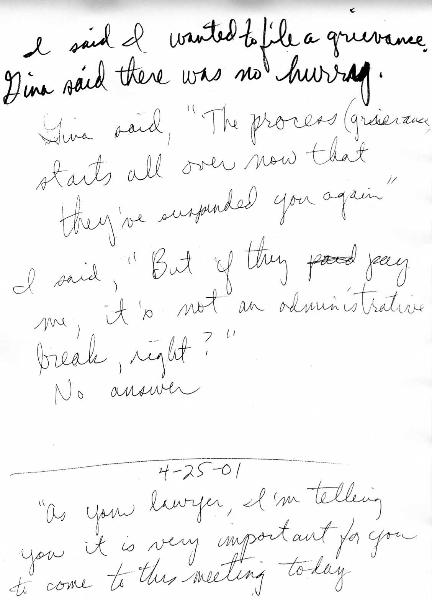 I said I wanted to file a grievance.
Gina said there was no hurray.
Gina said, "The process (grievance
starts all over now that
they've suspended you again"
I said, "But if they paid pay
me, it's not an administrative
break, right?"
No answer
4-25-01
"As your lawyer, I'm telling
you it is very important for you
to come to this meeting today